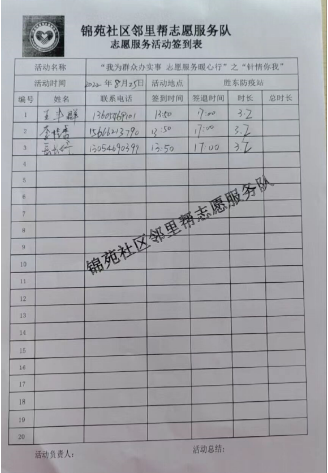 锦苑社区邻里帮志愿服务队
志愿服务活动签到表
活动名称 “我为群众办实事 志愿服务暖心行”之“针情你我”
活动时间 2022年8月25日 活动地点 胜东防疫站
编号 姓名 联系电话 签到时间 签退时间 时长 总时长
1 13:50 17:00 3.2
2 13:50 17:00 3.2
3 13:50 17:00 3.2
4
5
6
7
8
9
10
11
12
13
14
15
16
17
18
19
20
锦苑社区邻里帮志愿服务队
活动负责人： 活动总结：